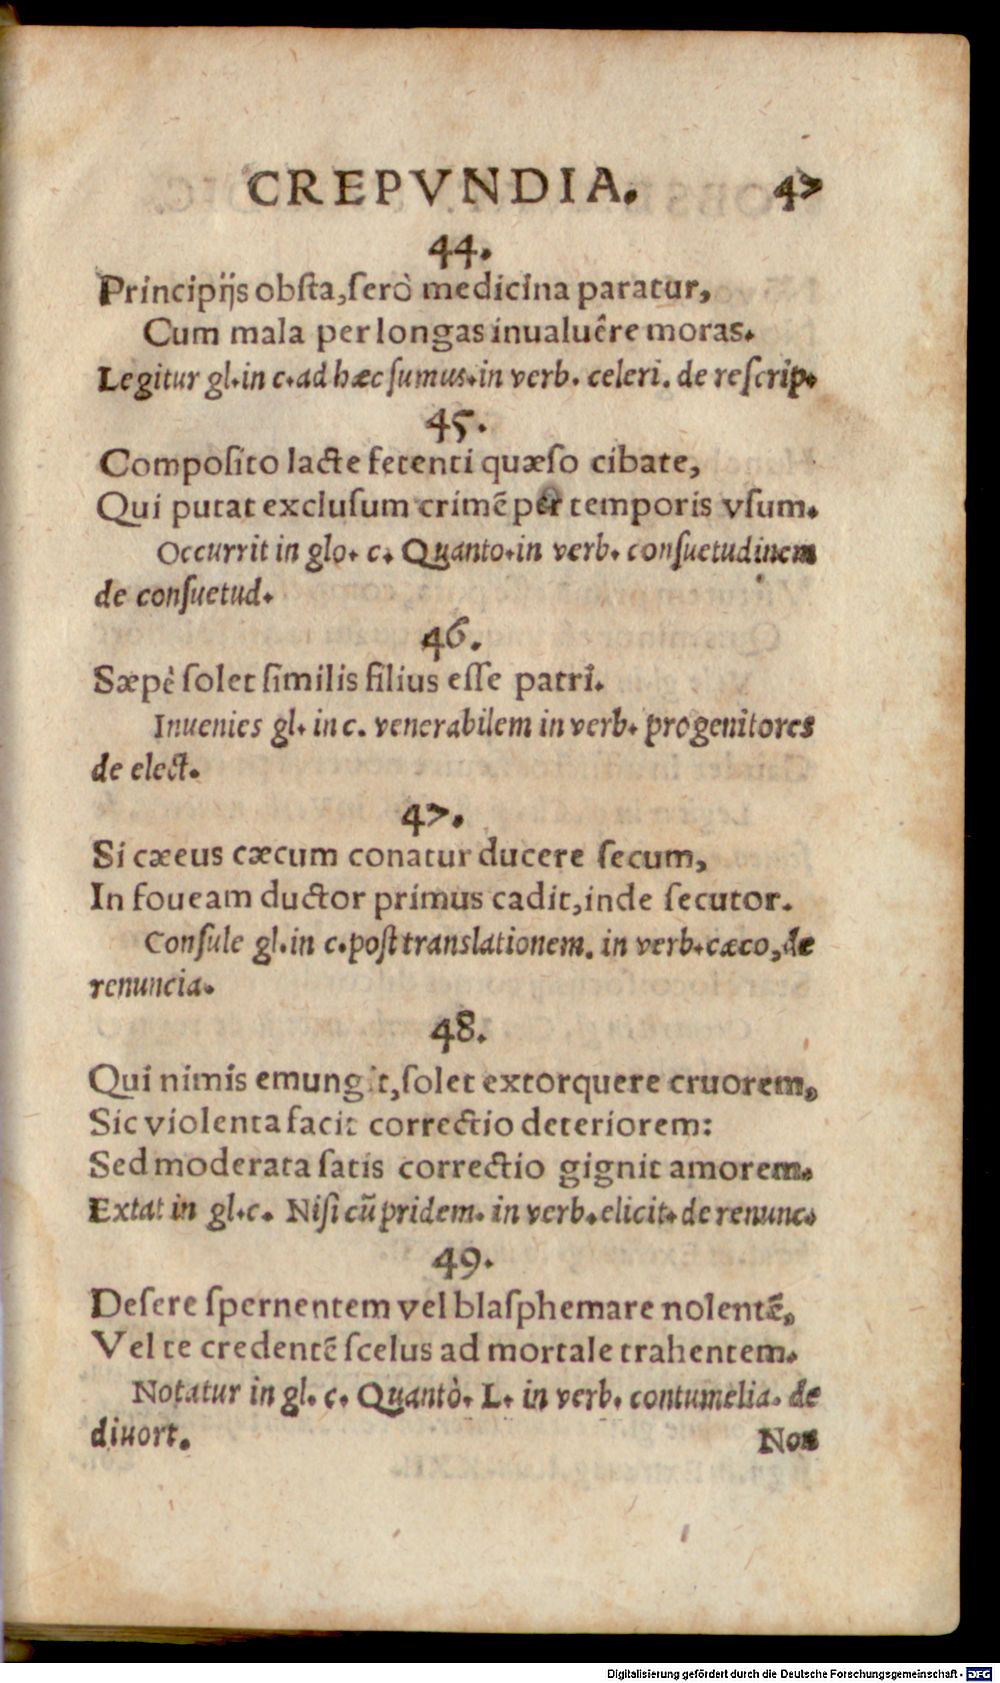 CREPVNDIA. 47
44.
Principijs obſta, ſerò medicina paratur,
Cum mala per longas inualuêre moras.
Legitur gl. in c. ad hæc ſumus. in verb. celeri. de reſcrip.
45.
Compoſito lacte fetenti quæſo cibate,
Qui putat excluſum crimẽ per temporis vſum.
Occurrit in glo. c. Quanto. in verb. conſuetudinem
de conſuetud.
46.
Sæpè ſolet ſimilis filius eſſe patri.
Inuenies gl. in c. venerabilem in verb. progenitores
de elect.
47.
Si cæeus cæcum conatur ducere ſecum,
In foueam ductor primus cadit, inde ſecutor.
Conſule gl. in c. poſt translationem. in verb. cæco, de
renuncia.
48.
Qui nimis emungit, ſolet extorquere cruorem,
Sic violenta facit correctio deteriorem:
Sed moderata ſatis correctio gignit amorem.
Extat in gl. c. Niſi cũ pridem. in verb. elicit. de renunc.
49.
Deſere ſpernentem vel blaſphemare nolentẽ,
Vel te credentẽ ſcelus ad mortale trahentem.
Notatur in gl. c. Quantò. L. in verb. contumelia. de
diuort. Non
Digitalisierung gefördert durch die Deutsche Forschungsgemeinschaft - DFG